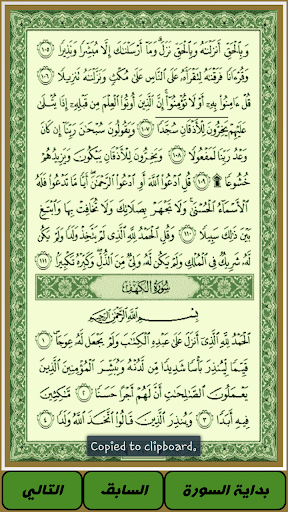 وَبِالْحَقِّ أَنزَلْنَاهُ وَبِالْحَقِّ نَزَلَ وَمَا أَرْسَلْنَاكَ إِلَّا مُبَشِّرًا وَنَذِيرًا ١٠٥
وَقُرْءَانًا فَرَقْنَاهُ لِتَقْرَأَهُ عَلَى النَّاسِ عَلَى مُكْثٍ وَنَزَّلْنَاهُ تَنزِيلًا ١٠٦
قُلْ ءَامِنُوا بِهِ أَوْ لَا تُؤْمِنُوا إِنَّ الَّذِينَ أُوتُوا الْعِلْمَ مِن قَبْلِهِ إِذَا يُتْلَى
عَلَيْهِمْ يَخِرُّونَ لِلْأَذْقَانِ سُجَّدًا ١٠٧ وَيَقُولُونَ سُبْحَانَ رَبِّنَا إِن كَانَ
وَعْدُ رَبِّنَا لَمَفْعُولًا ١٠٨ وَيَخِرُّونَ لِلْأَذْقَانِ يَبْكُونَ وَيَزِيدُهُمْ
خُشُوعًا ۩ ١٠٩ قُلِ ادْعُوا اللَّهَ أَوِ ادْعُوا الرَّحْمَٰنَ أَيًّا مَّا تَدْعُوا فَلَهُ
الْأَسْمَاءُ الْحُسْنَىٰ وَلَا تَجْهَرْ بِصَلَاتِكَ وَلَا تُخَافِتْ بِهَا وَابْتَغِ
بَيْنَ ذَٰلِكَ سَبِيلًا ١١٠ وَقُلِ الْحَمْدُ لِلَّهِ الَّذِي لَمْ يَتَّخِذْ وَلَدًا وَلَمْ يَكُن
لَّهُ شَرِيكٌ فِي الْمُلْكِ وَلَمْ يَكُن لَّهُ وَلِيٌّ مِّنَ الذُّلِّ وَكَبِّرْهُ تَكْبِيرًا ١١١
سُورَةُ الْكَهْفِ
بِسْمِ اللَّهِ الرَّحْمَٰنِ الرَّحِيمِ
الْحَمْدُ لِلَّهِ الَّذِي أَنزَلَ عَلَىٰ عَبْدِهِ الْكِتَابَ وَلَمْ يَجْعَل لَّهُ عِوَجًا ١
قَيِّمًا لِّيُنذِرَ بَأْسًا شَدِيدًا مِّن لَّدُنْهُ وَيُبَشِّرَ الْمُؤْمِنِينَ الَّذِينَ
يَعْمَلُونَ الصَّالِحَاتِ أَنَّ لَهُمْ أَجْرًا حَسَنًا ٢ مَّاكِثِينَ
فِيهِ أَبَدًا ٣ وَيُنذِرَ الَّذِينَ قَالُوا اتَّخَذَ اللَّهُ وَلَدًا ٤
Copied to clipboard.
بداية السورة
السابق
التالي